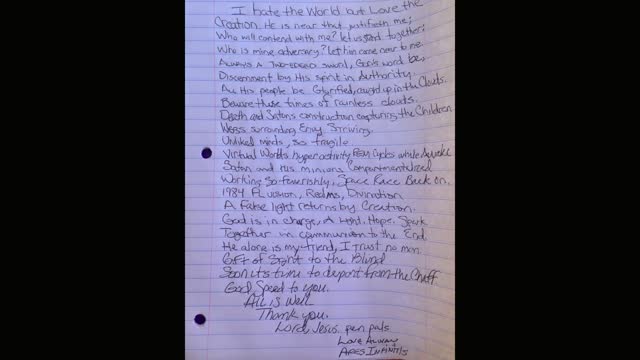 I hate the World but Love the
Creation. He is near that justifieth me;
Who will contend with me? let us stand together:
Who is mine adversary? Let him come near to me.
Always a Two-edged sword, God's word be,
Discernment by His spirit in Authority.
All His people be Glorified, caught up in the Clouds.
Beware these times of rainless clouds.
Death and Satans construction capturing the Children
Webs surrounding Envy Striving.
minds, so fragile.
Virtual Worlds hyperactivity Cycles while
Satan and His minions Compartmentalized
Working so feverishly, Space Race Back on.
1984 Realms, Divination
A false light returns by Creation.
God is in charge, A Light, Hope, Spark
Together in communion to the End
He alone is my friend, I trust no man.
Gift of Sight to the Blind
Soon its time to depart from the Chaff.
God Speed to you.
All is Well
Thank you.
Lord Jesus. pen pals
Love Always